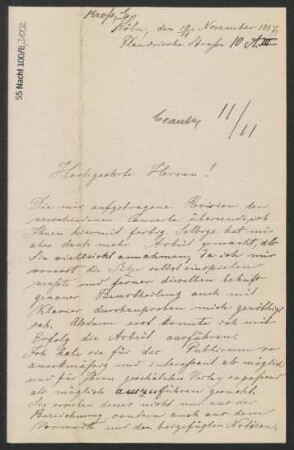 55 Nachl 100/B,3/002
Köln, den 10/11 November 1887,
Flandrische Strasse 10 A. III
11/11
Hochgeehrte Herren!
Die mir aufgetragene Revision der
verschiedenen Concerte übersende ich
Ihnen hiermit fertig. Selbige hat mir
aber doch mehr Arbeit gemacht, als
Sie vielleicht annahmen, da ich mir
vorerst die Sätze selbst einspielen
musste und ferner dieselben behufs
genauer Beurtheilung auch mit
Klavier durchzuproben mich genöthigt
sah. Alsdann erst konnte ich mit
Erfolg die Arbeit ausführen.
Ich habe sie für das Publicum so
zweckmässig und interessant als möglich
und für Ihren geschätzten Verlag
als möglich auszuführen gesucht.
Sie ersehen dieses nicht nur aus der
Bezeichnung, sondern auch aus dem
Vorworte und den beigefügten Notizen.